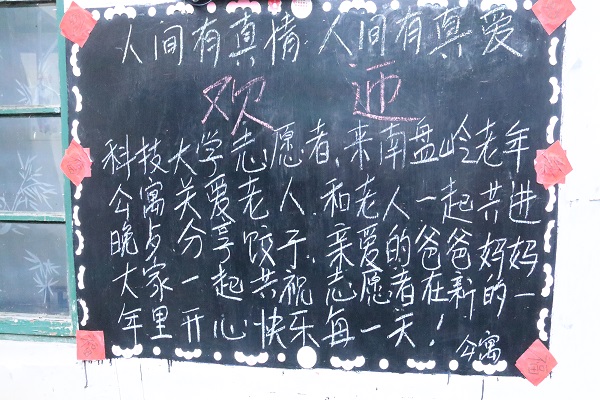 人间有真情 人间有真爱
欢迎
科技大学志愿者、来南盘岭老年
公寓关爱老人.和老人一起共进
晚歺分享饺子.亲爱的爸爸妈妈
大家一起共祝志愿者在新的一
年里开心快乐每一天!
公寓